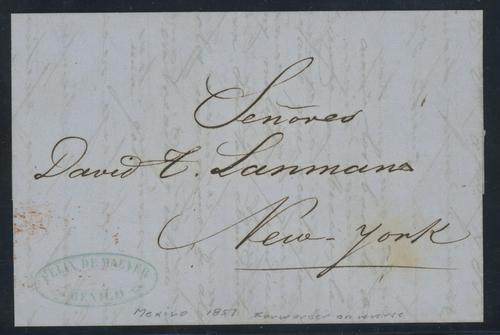 Señores
David T. Lanman
New-York
FELIX DE MAEYER
MEXICO
Mexico 1857 Forwarder on reverse